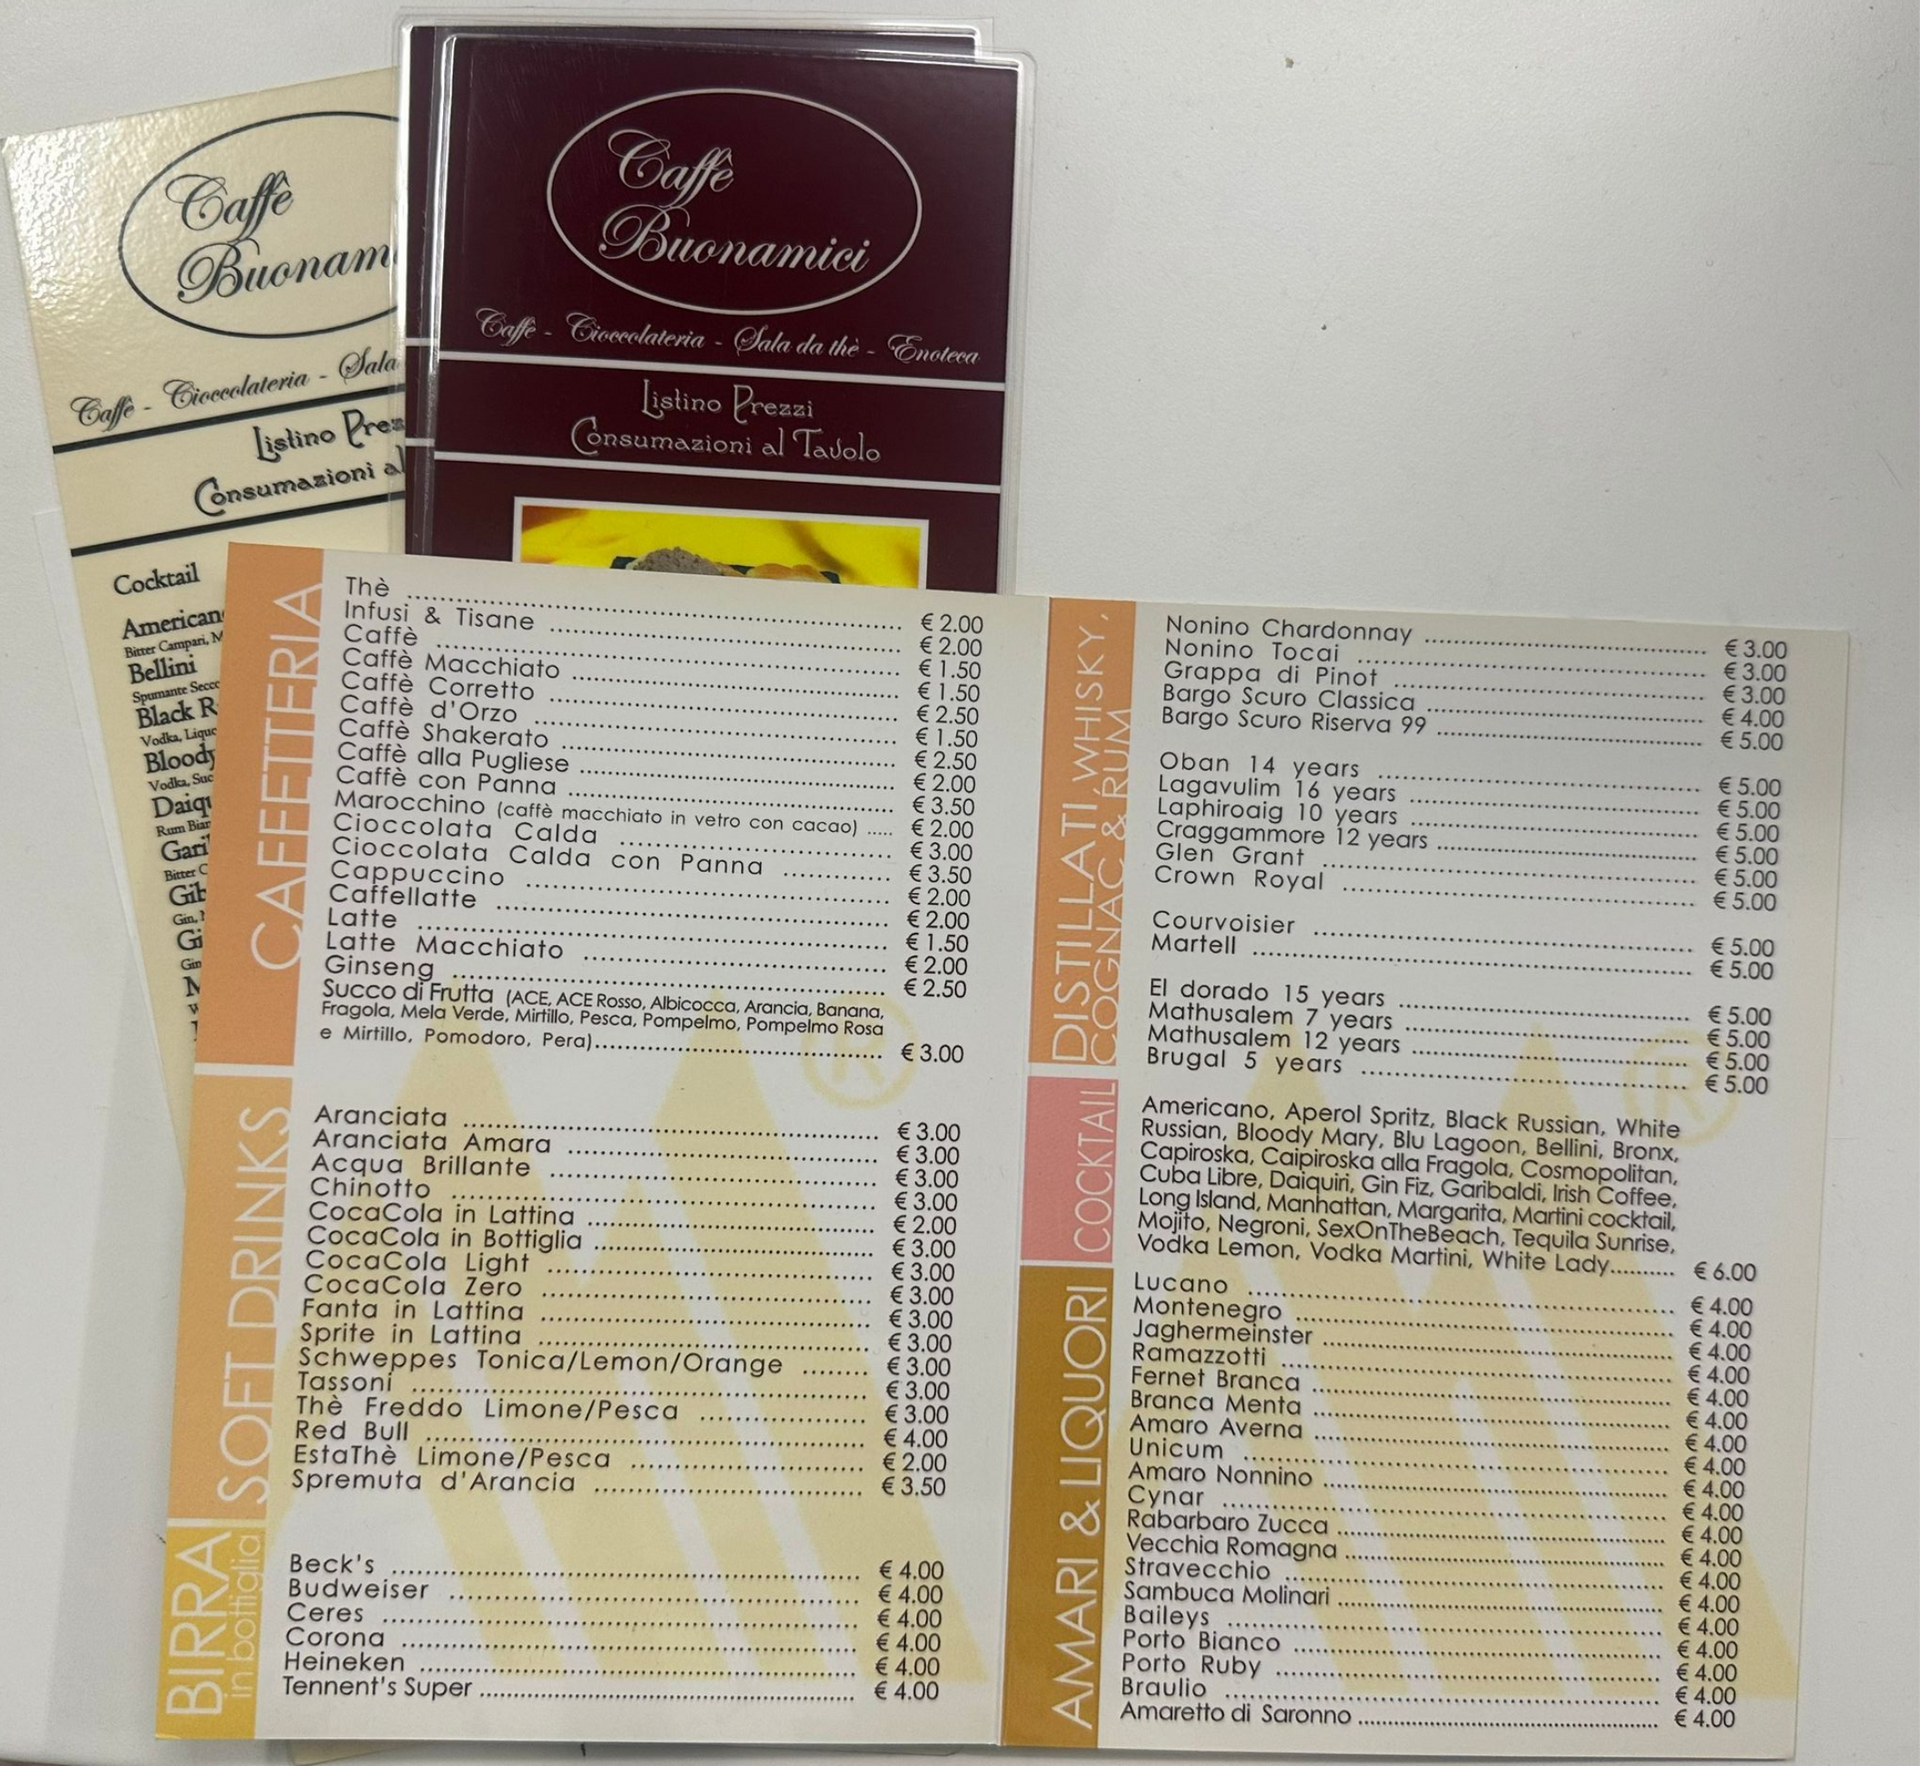 Caffè
Caffè - Cioccolateria - Sala
Listino
Consumazioni al
Cocktail
Bitter Campari,
Bellini
Spumante Secco
Black
Vodka,
Bloody
Vodka,
Rum
Bitter
Gin,
Caffè
Buonamici
Caffè - Cioccolateria - Sala da thè - Enoteca
Listino Prezzi
Consumazioni al Tavolo
CAFFETTERIA
Thè € 2.00
Infusi & Tisane € 2.00
Caffè € 1.50
Caffè Macchiato € 1.50
Caffè Corretto € 2.50
Caffè d'Orzo € 1.50
Caffè Shakerato € 2.50
Caffè alla Pugliese € 2.00
Caffè con Panna € 3.50
Marocchino (caffè macchiato in vetro con cacao) € 2.00
Cioccolata Calda € 3.00
Cioccolata Calda con Panna € 3.50
Cappuccino € 2.00
Caffellatte € 2.00
Latte € 1.50
Latte Macchiato € 2.00
Ginseng € 2.50
Succo di Frutta (ACE, ACE Rosso, Albicocca, Arancia, Banana,
Fragola, Mela Verde, Mirtillo, Pesca, Pompelmo, Pompelmo Rosa
e Mirtillo, Pomodoro, Pera) € 3.00
SOFT DRINKS
Aranciata € 3.00
Aranciata Amara € 3.00
Acqua Brillante € 3.00
Chinotto € 3.00
CocaCola in Lattina € 2.00
CocaCola in Bottiglia € 3.00
CocaCola Light € 3.00
CocaCola Zero € 3.00
Fanta in Lattina € 3.00
Sprite in Lattina € 3.00
Schweppes Tonica/Lemon/Orange € 3.00
Tassoni € 3.00
Thè Freddo Limone/Pesca € 3.00
Red Bull € 4.00
EstaThè Limone/Pesca € 2.00
Spremuta d'Arancia € 3.50
BIRRA
in bottiglia
Beck's € 4.00
Budweiser € 4.00
Ceres € 4.00
Corona € 4.00
Heineken € 4.00
Tennent's Super € 4.00
DISTILLATI, WHISKY,
COGNAC & RUM
Nonino Chardonnay € 3.00
Nonino Tocai € 3.00
Grappa di Pinot € 3.00
Bargo Scuro Classica € 4.00
Bargo Scuro Riserva 99 € 5.00
Oban 14 years € 5.00
Lagavulim 16 years € 5.00
Laphiroaig 10 years € 5.00
Craggammore 12 years € 5.00
Glen Grant € 5.00
Crown Royal € 5.00
Courvoisier € 5.00
Martell € 5.00
El dorado 15 years € 5.00
Mathusalem 7 years € 5.00
Mathusalem 12 years € 5.00
Brugal 5 years € 5.00
COCKTAIL
Americano, Aperol Spritz, Black Russian, White
Russian, Bloody Mary, Blu Lagoon, Bellini, Bronx,
Capiroska, Caipiroska alla Fragola, Cosmopolitan,
Cuba Libre, Daiquiri, Gin Fiz, Garibaldi, Irish Coffee,
Long Island, Manhattan, Margarita, Martini cocktail,
Mojito, Negroni, SexOnTheBeach, Tequila Sunrise,
Vodka Lemon, Vodka Martini, White Lady € 6.00
AMARI & LIQUORI
Lucano € 4.00
Montenegro € 4.00
Jaghermeinster € 4.00
Ramazzotti € 4.00
Fernet Branca € 4.00
Branca Menta € 4.00
Amaro Averna € 4.00
Unicum € 4.00
Amaro Nonnino € 4.00
Cynar € 4.00
Rabarbaro Zucca € 4.00
Vecchia Romagna € 4.00
Stravecchio € 4.00
Sambuca Molinari € 4.00
Baileys € 4.00
Porto Bianco € 4.00
Porto Ruby € 4.00
Braulio € 4.00
Amaretto di Saronno € 4.00